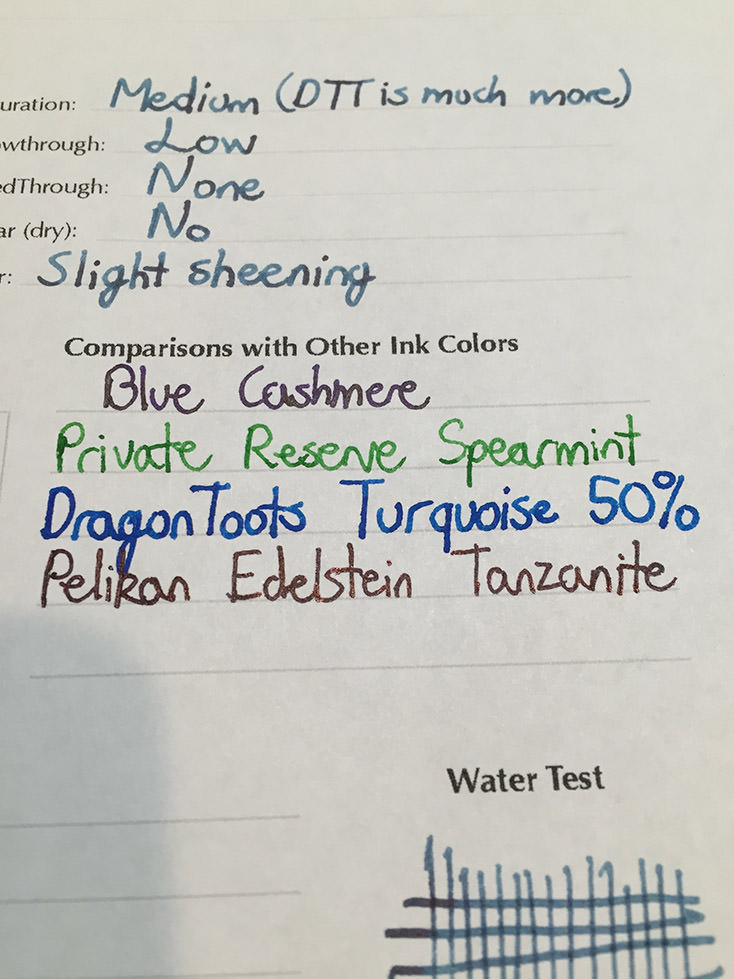 uration: Medium (DTT is much more)
wthrough: Low
edThrough: None
ar (dry): No
r: Slight sheening
Comparisons with Other Ink Colors
Blue Cashmere
Private Reserve Spearmint
DragonToots Turquoise 50%
Pelikan Edelstein Tanzanite
Water Test